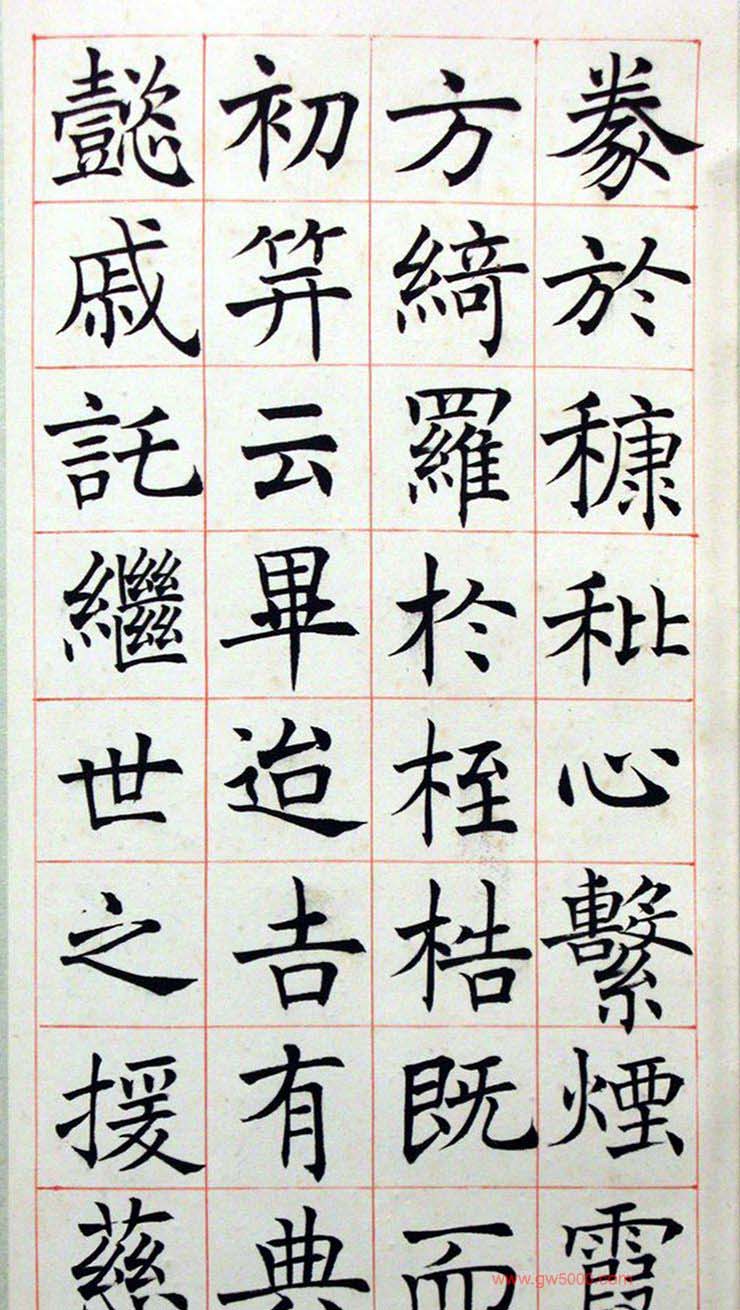 豢於穅秕心繫煙霞
方綺羅於桎梏既而
初笄云畢迨吉有典
懿戚託繼世之援慈
www.gw5000.com